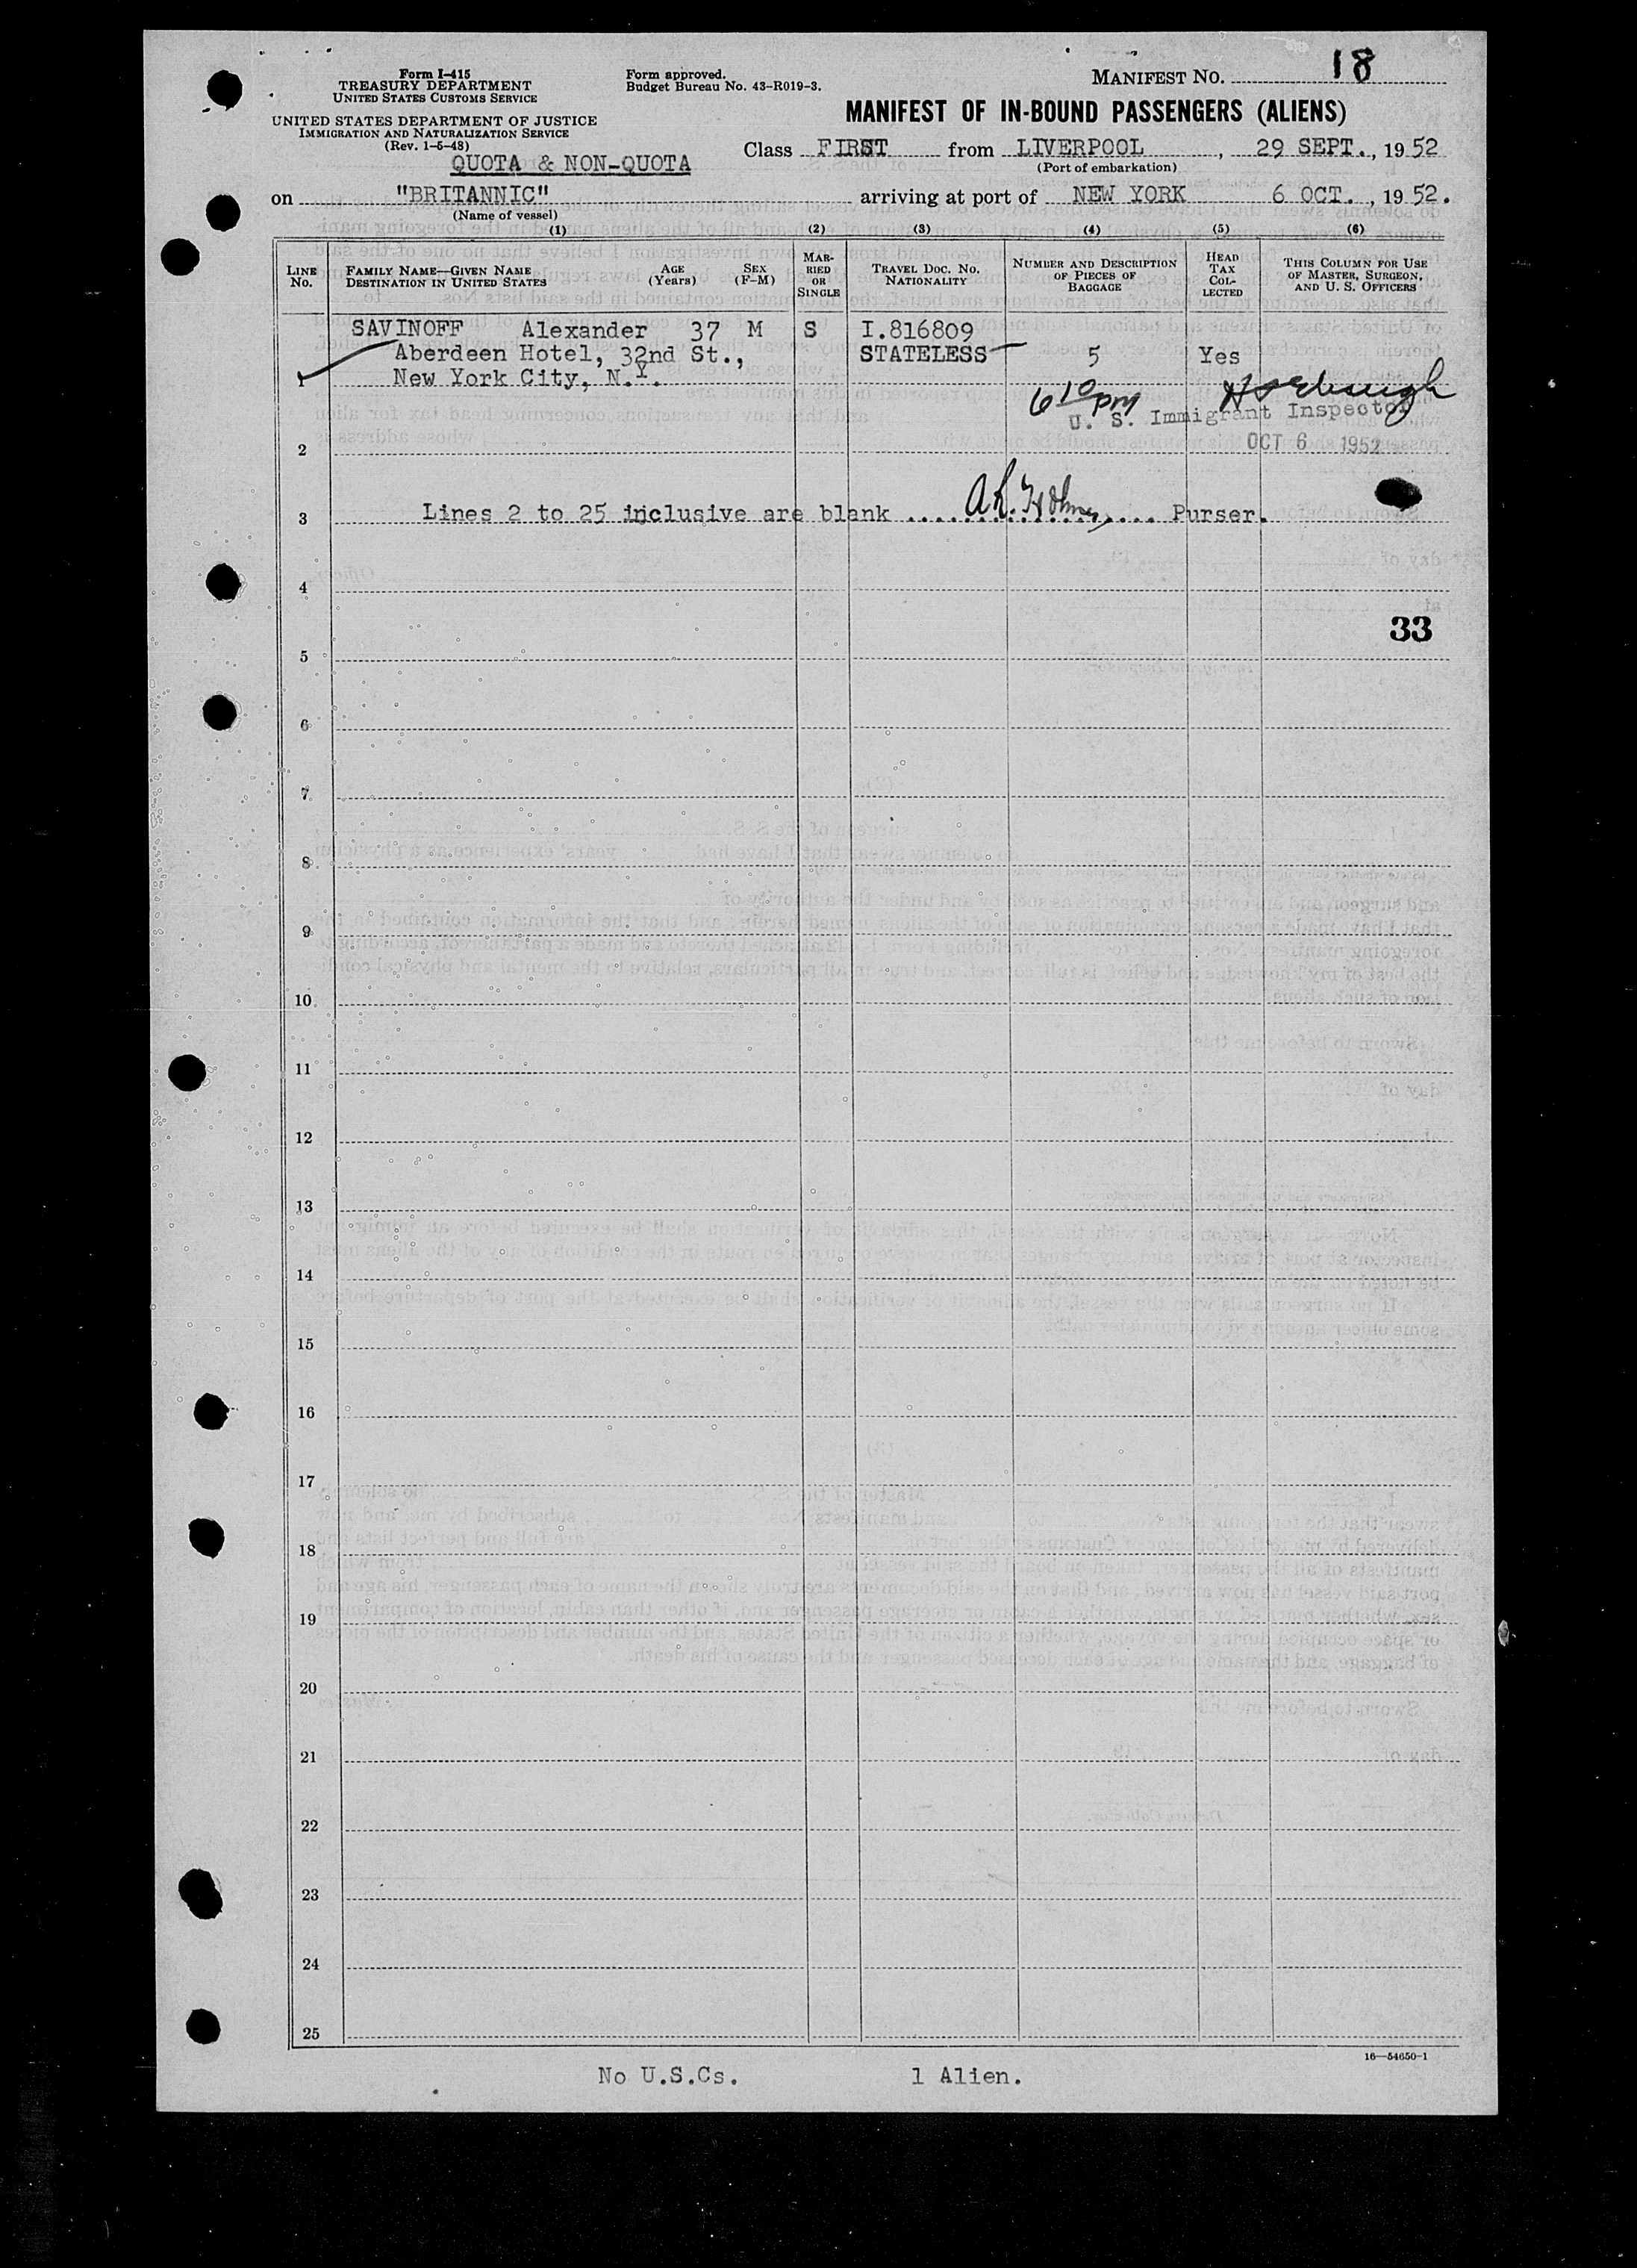 Form I-415
TREASURY DEPARTMENT
UNITED STATES CUSTOMS SERVICE
UNITED STATES DEPARTMENT OF JUSTICE
IMMIGRATION AND NATURALIZATION SERVICE
(Rev. 1-5-48)
Form approved.
Budget Bureau No. 43-R019-3.
MANIFEST NO. 18
MANIFEST OF IN-BOUND PASSENGERS (ALIENS)
QUOTA & NON-QUOTA
Class FIRST from LIVERPOOL, 29 SEPT., 1952
(Port of embarkation)
on "BRITANNIC" arriving at port of NEW YORK 6 OCT., 1952.
(Name of vessel)
(1) (2) (3) (4) (5) (6)
LINE No. FAMILY NAME—GIVEN NAME DESTINATION IN UNITED STATES AGE (Years) SEX (F-M) MAR-RIED OR SINGLE TRAVEL DOC. NO. NATIONALITY NUMBER AND DESCRIPTION OF PIECES OF BAGGAGE HEAD TAX COL-LECTED THIS COLUMN FOR USE OF MASTER, SURGEON, AND U. S. OFFICERS
SAVINOFF Alexander 37 M S I.816809
Aberdeen Hotel, 32nd St., STATELESS 5 Yes
1 New York City, N.Y.
6 10 pm
U. S. Immigrant Inspector
OCT 6 1952
2
3 Lines 2 to 25 inclusive are blank .... .... Purser.
4
33
5
6
7
8
9
10
11
12
13
14
15
16
17
18
19
20
21
22
23
24
25
16—54650-1
No U.S.Cs. 1 Alien.